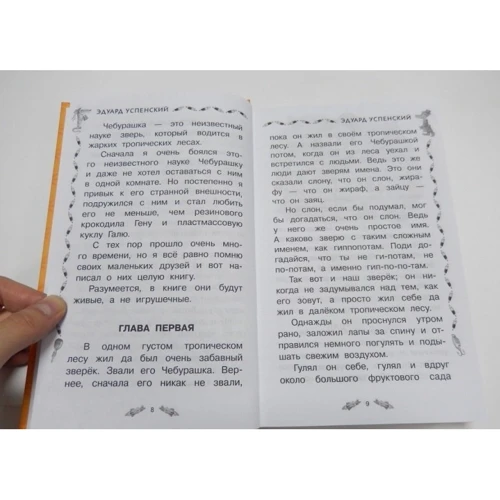 ЭДУАРД УСПЕНСКИЙ
Чебурашка — это неизвестный
науке зверь, который водится в
жарких тропических лесах.
Сначала я очень боялся это-
го неизвестного науке Чебурашку
и даже не хотел оставаться с ним
в одной комнате. Но постепенно я
привык к его странной внешности,
подружился с ним и стал любить
его не меньше, чем резинового
крокодила Гену и пластмассовую
куклу Галю.
С тех пор прошло очень мно-
го времени, но я всё равно помню
своих маленьких друзей и вот на-
писал о них целую книгу.
Разумеется, в книге они будут
живые, а не игрушечные.
ГЛАВА ПЕРВАЯ
В одном густом тропическом
лесу жил да был очень забавный
зверёк. Звали его Чебурашка. Вер-
нее, сначала его никак не звали,
8
ЭДУАРД УСПЕНСКИЙ
пока он жил в своём тропическом
лесу. А назвали его Чебурашкой
потом, когда он из леса уехал и
встретился с людьми. Ведь это же
люди дают зверям имена. Это они
сказали слону, что он слон, жира-
фу — что он жираф, а зайцу —
что он заяц.
Но слон, если бы подумал, мог
бы догадаться, что он слон. Ведь
у него же очень простое имя.
А каково зверю с таким сложным
именем, как гиппопотам. Поди до-
гадайся, что ты не ги-потам, не
по-потам, а именно гип-по-по-там.
Так вот и наш зверёк; он ни-
когда не задумывался над тем, как
его зовут, а просто жил себе да
жил в далёком тропическом лесу.
Однажды он проснулся утром
рано, заложил лапы за спину и от-
правился немного погулять и поды-
шать свежим воздухом.
Гулял он себе, гулял и вдруг
около большого фруктового сада
9